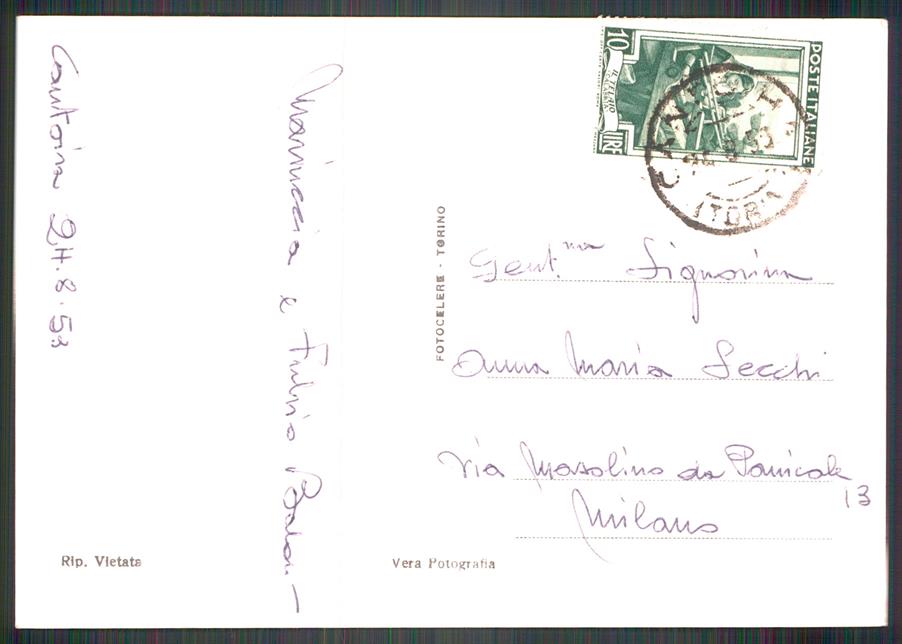 Cantoira 24.8.53
Mariuccia e Fulvio
FOTOCELERE - TORINO
10 LIRE
POSTE ITALIANE
IL TELAIO
Gent.ma Signorina
Anna Maria Secchi
Via Masolino da Panicale
13
Milano
Rip. Vietata
Vera Fotografia